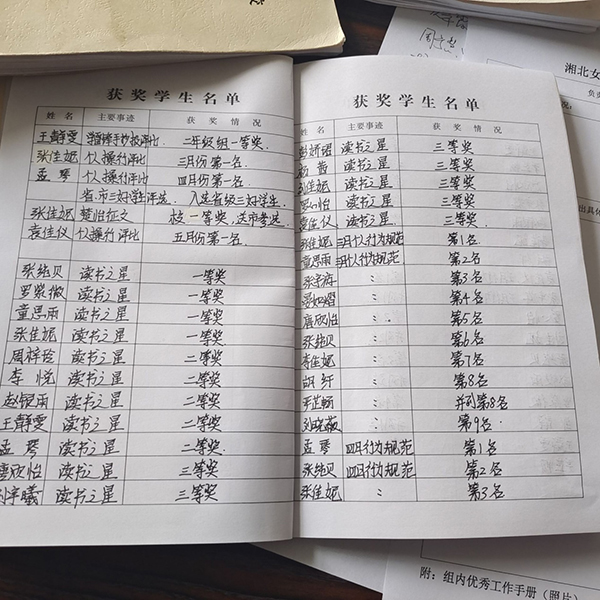 获奖学生名单
姓 名 主要事迹 获 奖 情 况
王静雯 二年级组一等奖
张佳妮 个人操行评比 三月份第一名.
孟 琴 个人操行评比 四月份第一名.
省.市三好学生评选. 入选省级三好学生.
张佳妮 征文 校一等奖,送市参选.
袁佳仪 个人操行评比 五月份第一名.
张纯贝 读书之星 一等奖
罗紫薇 读书之星 一等奖
童思雨 读书之星 一等奖
张佳妮 读书之星 一等奖
周梓 读书之星 二等奖
李 悦 读书之星 二等奖
赵银雨 读书之星 二等奖
王静雯 读书之星 二等奖
孟 琴 读书之星 二等奖
唐欣怡 读书之星 三等奖
宇曦 读书之星 三等奖
获奖学生名单
姓 名 主要事迹 获 奖 情 况
读书之星 三等奖
读书之星 三等奖
佳妮 读书之星 三等奖
怡 读书之星 三等奖
袁佳仪 读书之星 三等奖
张佳妮 三月行为规范 第1名
童思雨 三月行为规范 第2名
张宇 〃 第3名
〃 第4名
唐欣怡 〃 第5名
张纯贝 〃 第6名
李佳妮 〃 第7名
胡 纤 〃 第8名
芷畅 〃 并列第8名
刘晓薇 〃 第9名
孟 琴 四月行为规范 第1名
张纯贝 四月行为规范 第2名
张佳妮 〃 第3名
湘北女
负责
出具体
附：组内优秀工作手册（照片）